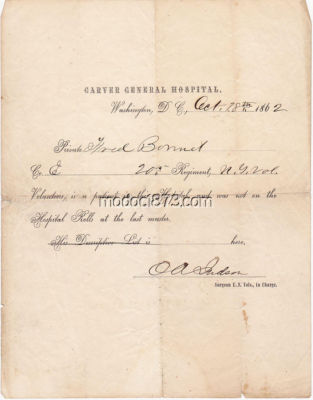 CARVER GENERAL HOSPITAL.
Washington, D. C., Oct. 18th 1862
Private Fred Bonnet
Co. E 20 Regiment, N.Y. Vol.
Volunteers, is a patient in this Hospital, and was not on the
Hospital Rolls at the last muster.
modoc1873.com
His Descriptive List is here.
O A Judson
Surgeon U.S. Vols., in Charge.